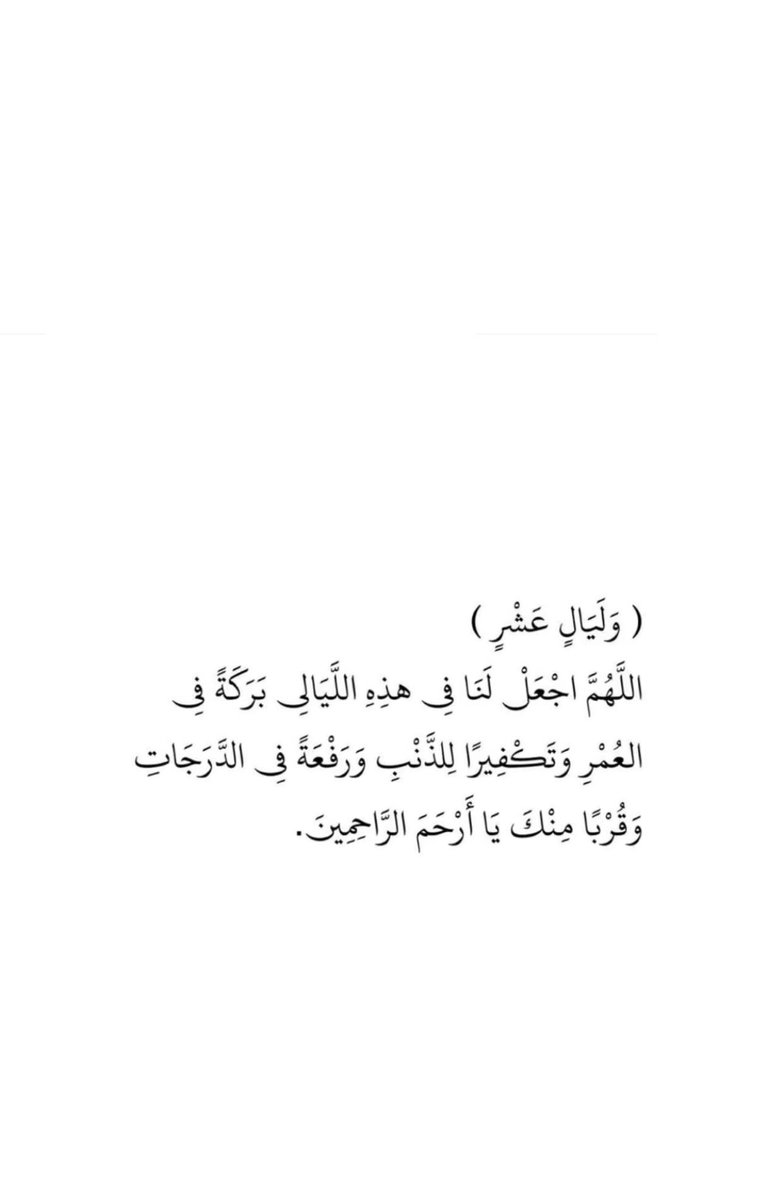 ( وَلَيَالٍ عَشْرٍ )
اللَّهُمَّ اجْعَلْ لَنَا فِى هذِهِ اللَّيَالِى بَرَكَةً فِى
العُمْرِ وَتَكْفِيرًا لِلذَّنْبِ وَرَفْعَةً فِى الدَّرَجَاتِ
وَقُرْبًا مِنْكَ يَا أَرْحَمَ الرَّاحِمِينَ.